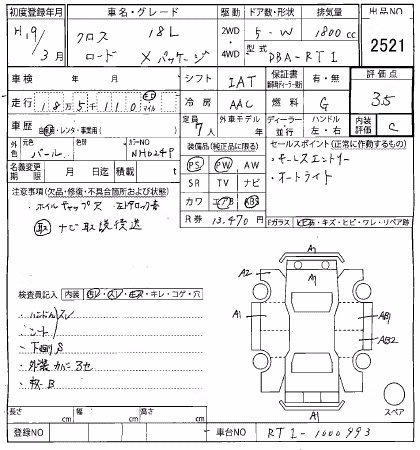 初度登録年月 車名・グレード 駆動 ドア数・形状 排気量 出品NO
H.19/3月 クロスロード 18L Xパッケージ 2WD・4WD 5-W 1800cc 2521
型式 DBA-RT1
車検 年 月 シフト IAT 保証書 有・無 評価点
走行 18万5千110 km マイル 冷房 AAC 燃料 G 3.5
車歴 自家用・レンタ・事業用( ) 定員 7人 外車モデル年 ディーラー 並行 ハンドル 左・右 内装評価 C
元色 パール 色替 カラーNO NH624P
装備品(純正品に限る) セールスポイント(正常に作動するもの)
名義変更期限 月 日迄 積載 t
PS PW AW ・キーレスエントリー
SR TV ナビ ・オートライト
カワ エアB ABS
注意事項(欠品・修復・不具合箇所および状態)
・ホイルキャップス
取 ナビ取説後送
R券 13,470円 Fガラス ヒビ・キズ・ヒビ・ワレ・リペア跡
検査員記入 内装 ・キレ・コゲ・穴
・ハンドルスレ
・シート
・下廻りS
・外装
B
A1
A2
A1
A1
AB1
AB2
A1
スペア
長さ cm 幅 cm 高さ cm
登録NO 車台NO RT1-1000993